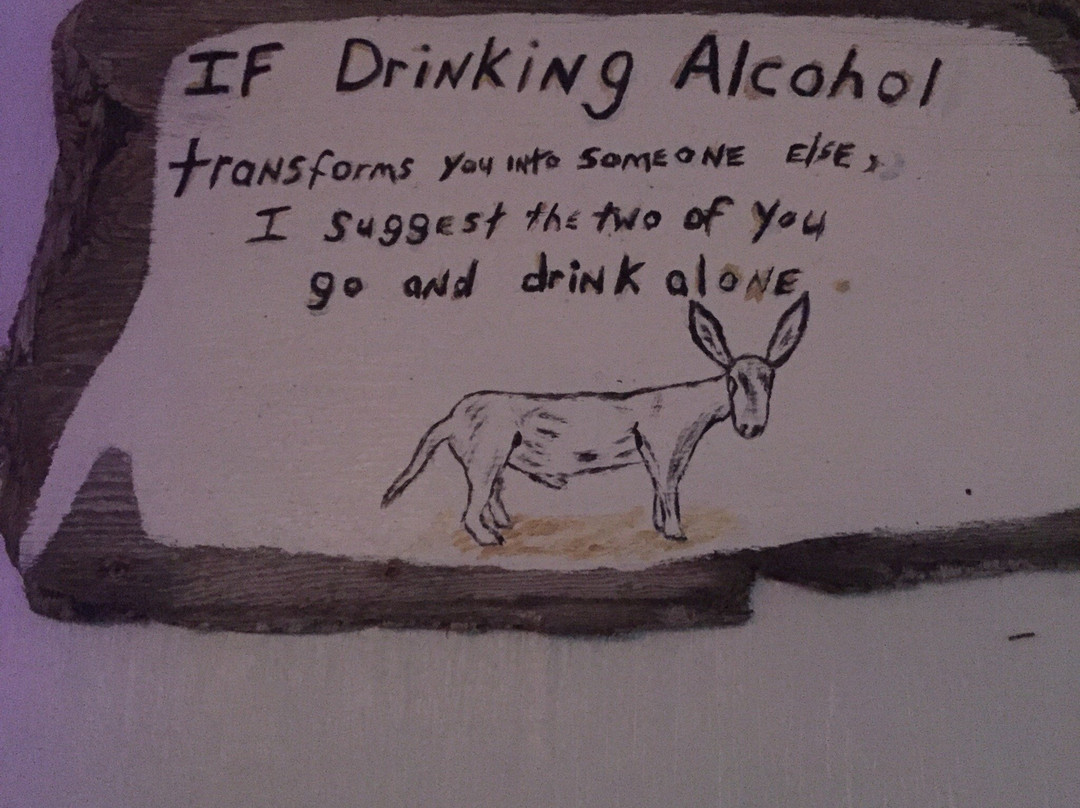 IF Drinking Alcohol
transforms you into someone else,
I suggest the two of you
go and drink alone.